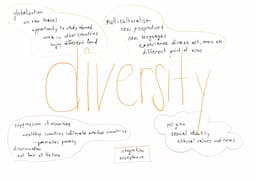 globalisation
we can travel
opportunity to study abroad
work in other countries
enjoy different food
multiculturalism
new perspectives
new languages
experience diverse art, music etc.
different point of views
diversity
suppression of minorities
wealthy countries infiltrate weaker countries
→ generates poverty
discrimination
not fair at all times
religion
sexual identity
ethical values and norms
integration
acceptance